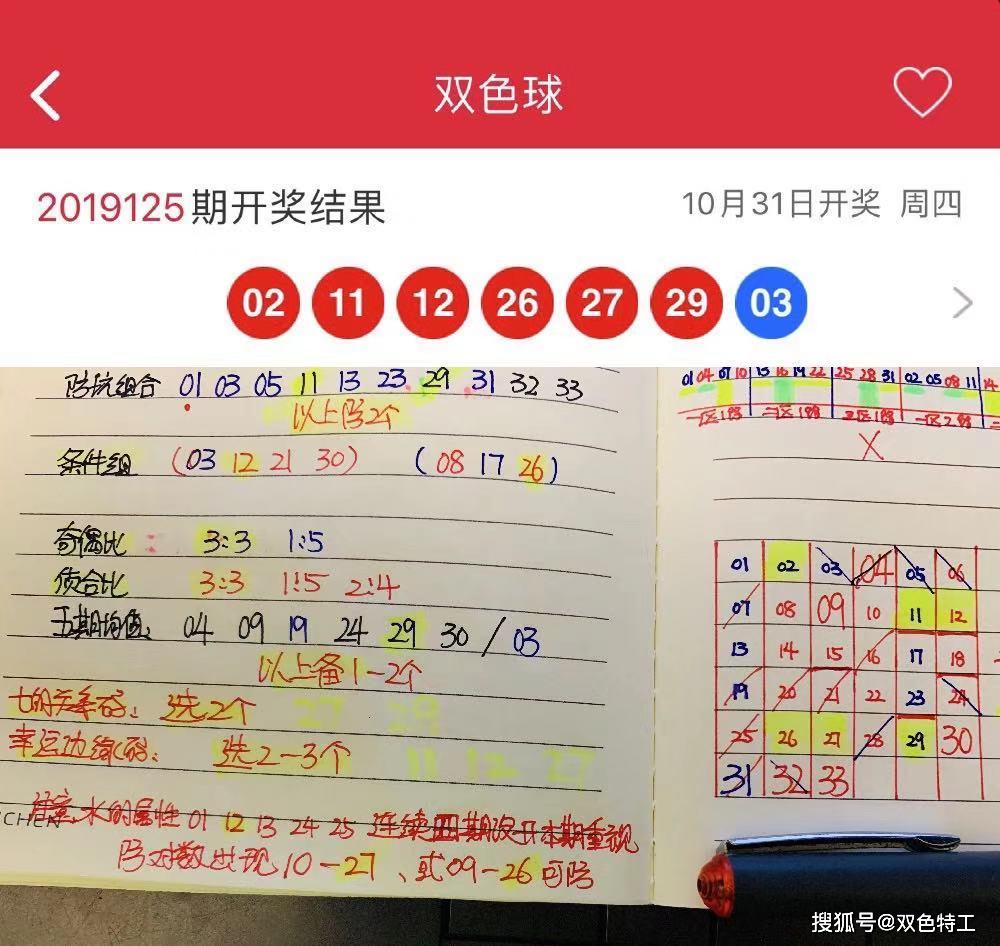 双色球
2019125期开奖结果
10月31日开奖 周四
02 11 12 26 27 29 03
防抗组合 01 03 05 11 13 23 29 31 32 33
以上防2个
条件组 (03 12 21 30) (08 17 26)
奇偶比: 3:3 1:5
质合比 3:3 1:5 2:4
五期均值: 04 09 19 24 29 30 / 03
以上备1-2个
关系码: 选2个 27 29
幸运边缘码: 选2-3个 11 12 27
水的属性 01 12 13 24 25 连续四期没开本期重视
防对数出现10-27、或09-26可防
01 04 07 10 13 16 19 22 25 28 31 02 05 08 11 14
一区1路 二区1路 三区1路 一区2路
X
01 02 03 04 05 06
07 08 09 10 11 12
13 14 15 16 17 18
19 20 21 22 23 24
25 26 27 28 29 30
31 32 33
搜狐号@双色特工